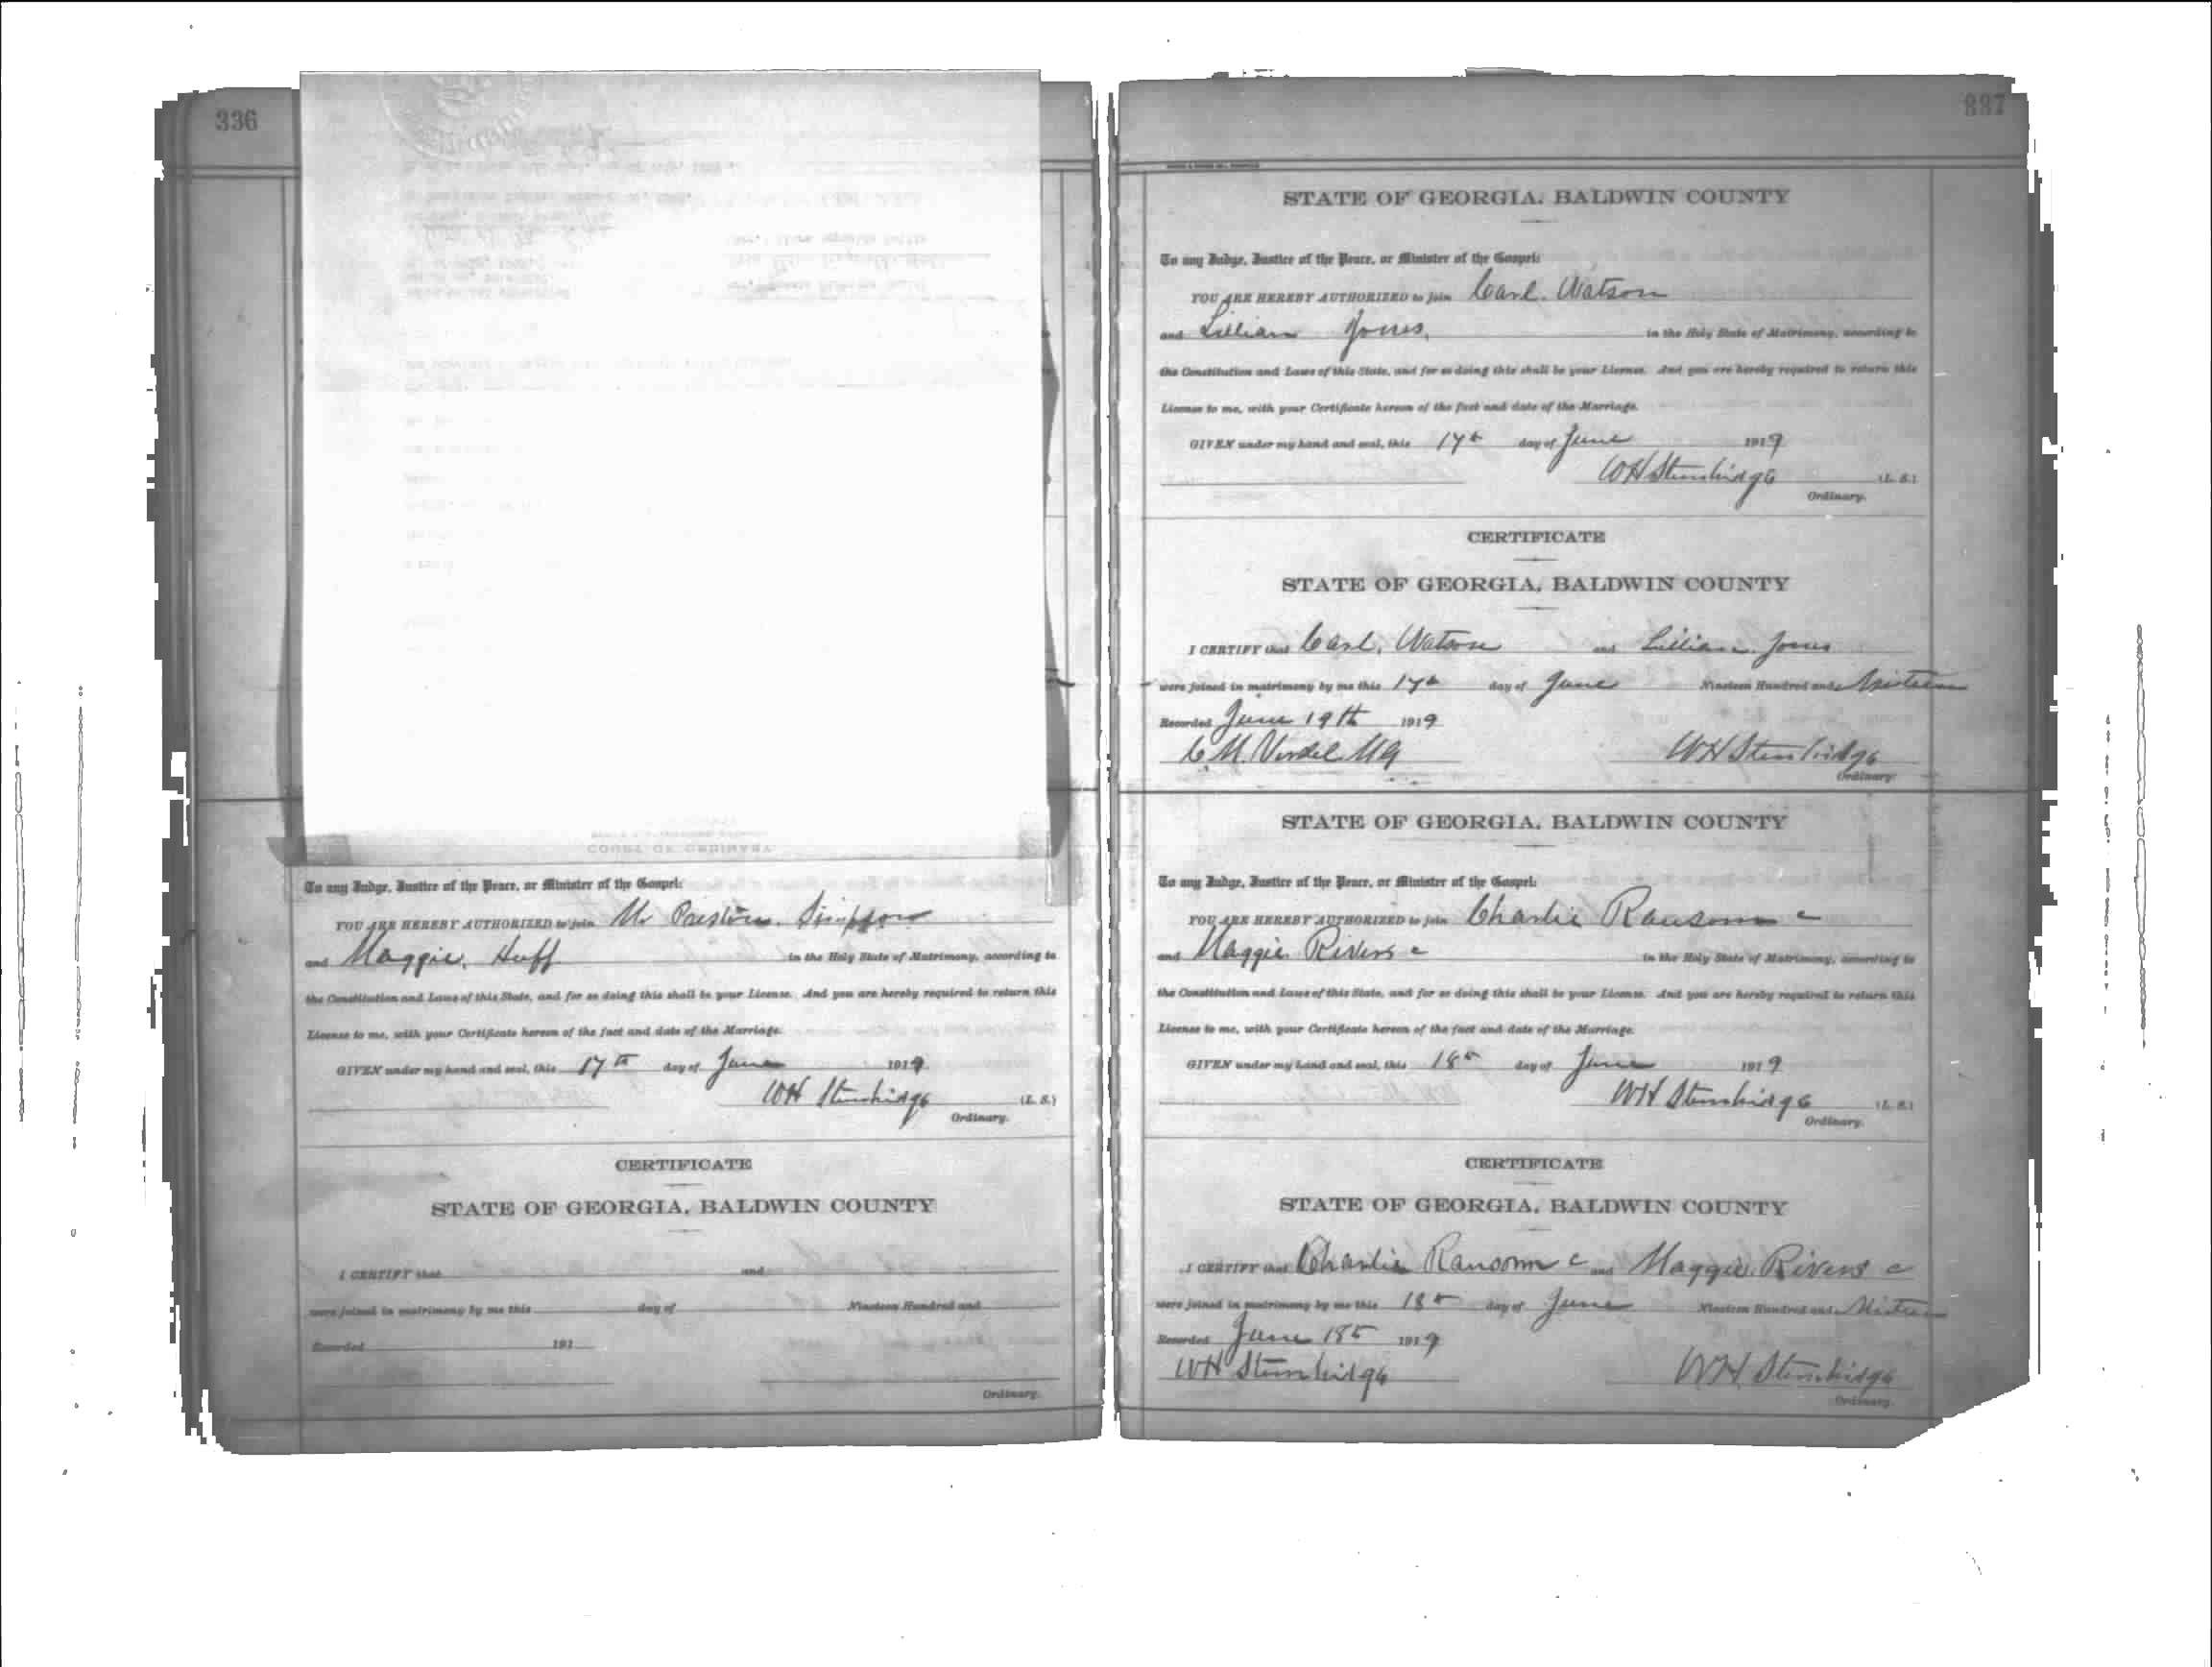 336
To any Judge, Justice of the Peace, or Minister of the Gospel:
YOU ARE HEREBY AUTHORIZED to join Mr Preston. Simpson
and Maggie. Huff in the Holy State of Matrimony, according to
the Constitution and Laws of this State, and for so doing this shall be your License. And you are hereby required to return this
License to me, with your Certificate hereon of the fact and date of the Marriage.
GIVEN under my hand and seal, this 17th day of June 1919
WH Stembridge (L. S.)
Ordinary.
CERTIFICATE
STATE OF GEORGIA, BALDWIN COUNTY
I CERTIFY that and
were joined in matrimony by me this day of Nineteen Hundred and
Recorded 191
Ordinary.
337
STATE OF GEORGIA, BALDWIN COUNTY
To any Judge, Justice of the Peace, or Minister of the Gospel:
YOU ARE HEREBY AUTHORIZED to join Carl. Watson
and Lillian Jones. in the Holy State of Matrimony, according to
the Constitution and Laws of this State, and for so doing this shall be your License. And you are hereby required to return this
License to me, with your Certificate hereon of the fact and date of the Marriage.
GIVEN under my hand and seal, this 17th day of June 1919
WH Stembridge (L. S.)
Ordinary.
CERTIFICATE
STATE OF GEORGIA, BALDWIN COUNTY
I CERTIFY that Carl. Watson and Lillian Jones
were joined in matrimony by me this 17th day of June Nineteen Hundred and Nineteen
Recorded June 19th 1919
C M. Verdel MG WH Stembridge
Ordinary
STATE OF GEORGIA, BALDWIN COUNTY
To any Judge, Justice of the Peace, or Minister of the Gospel:
YOU ARE HEREBY AUTHORIZED to join Charlie Ransom c
and Maggie Rivers c in the Holy State of Matrimony, according to
the Constitution and Laws of this State, and for so doing this shall be your License. And you are hereby required to return this
License to me, with your Certificate hereon of the fact and date of the Marriage.
GIVEN under my hand and seal, this 18th day of June 1919
WH Stembridge (L. S.)
Ordinary.
CERTIFICATE
STATE OF GEORGIA, BALDWIN COUNTY
I CERTIFY that Charlie Ransom c and Maggie Rivers c
were joined in matrimony by me this 18th day of June Nineteen Hundred and Nineteen
Recorded June 18th 1919
WH Stembridge WH Stembridge
Ordinary.